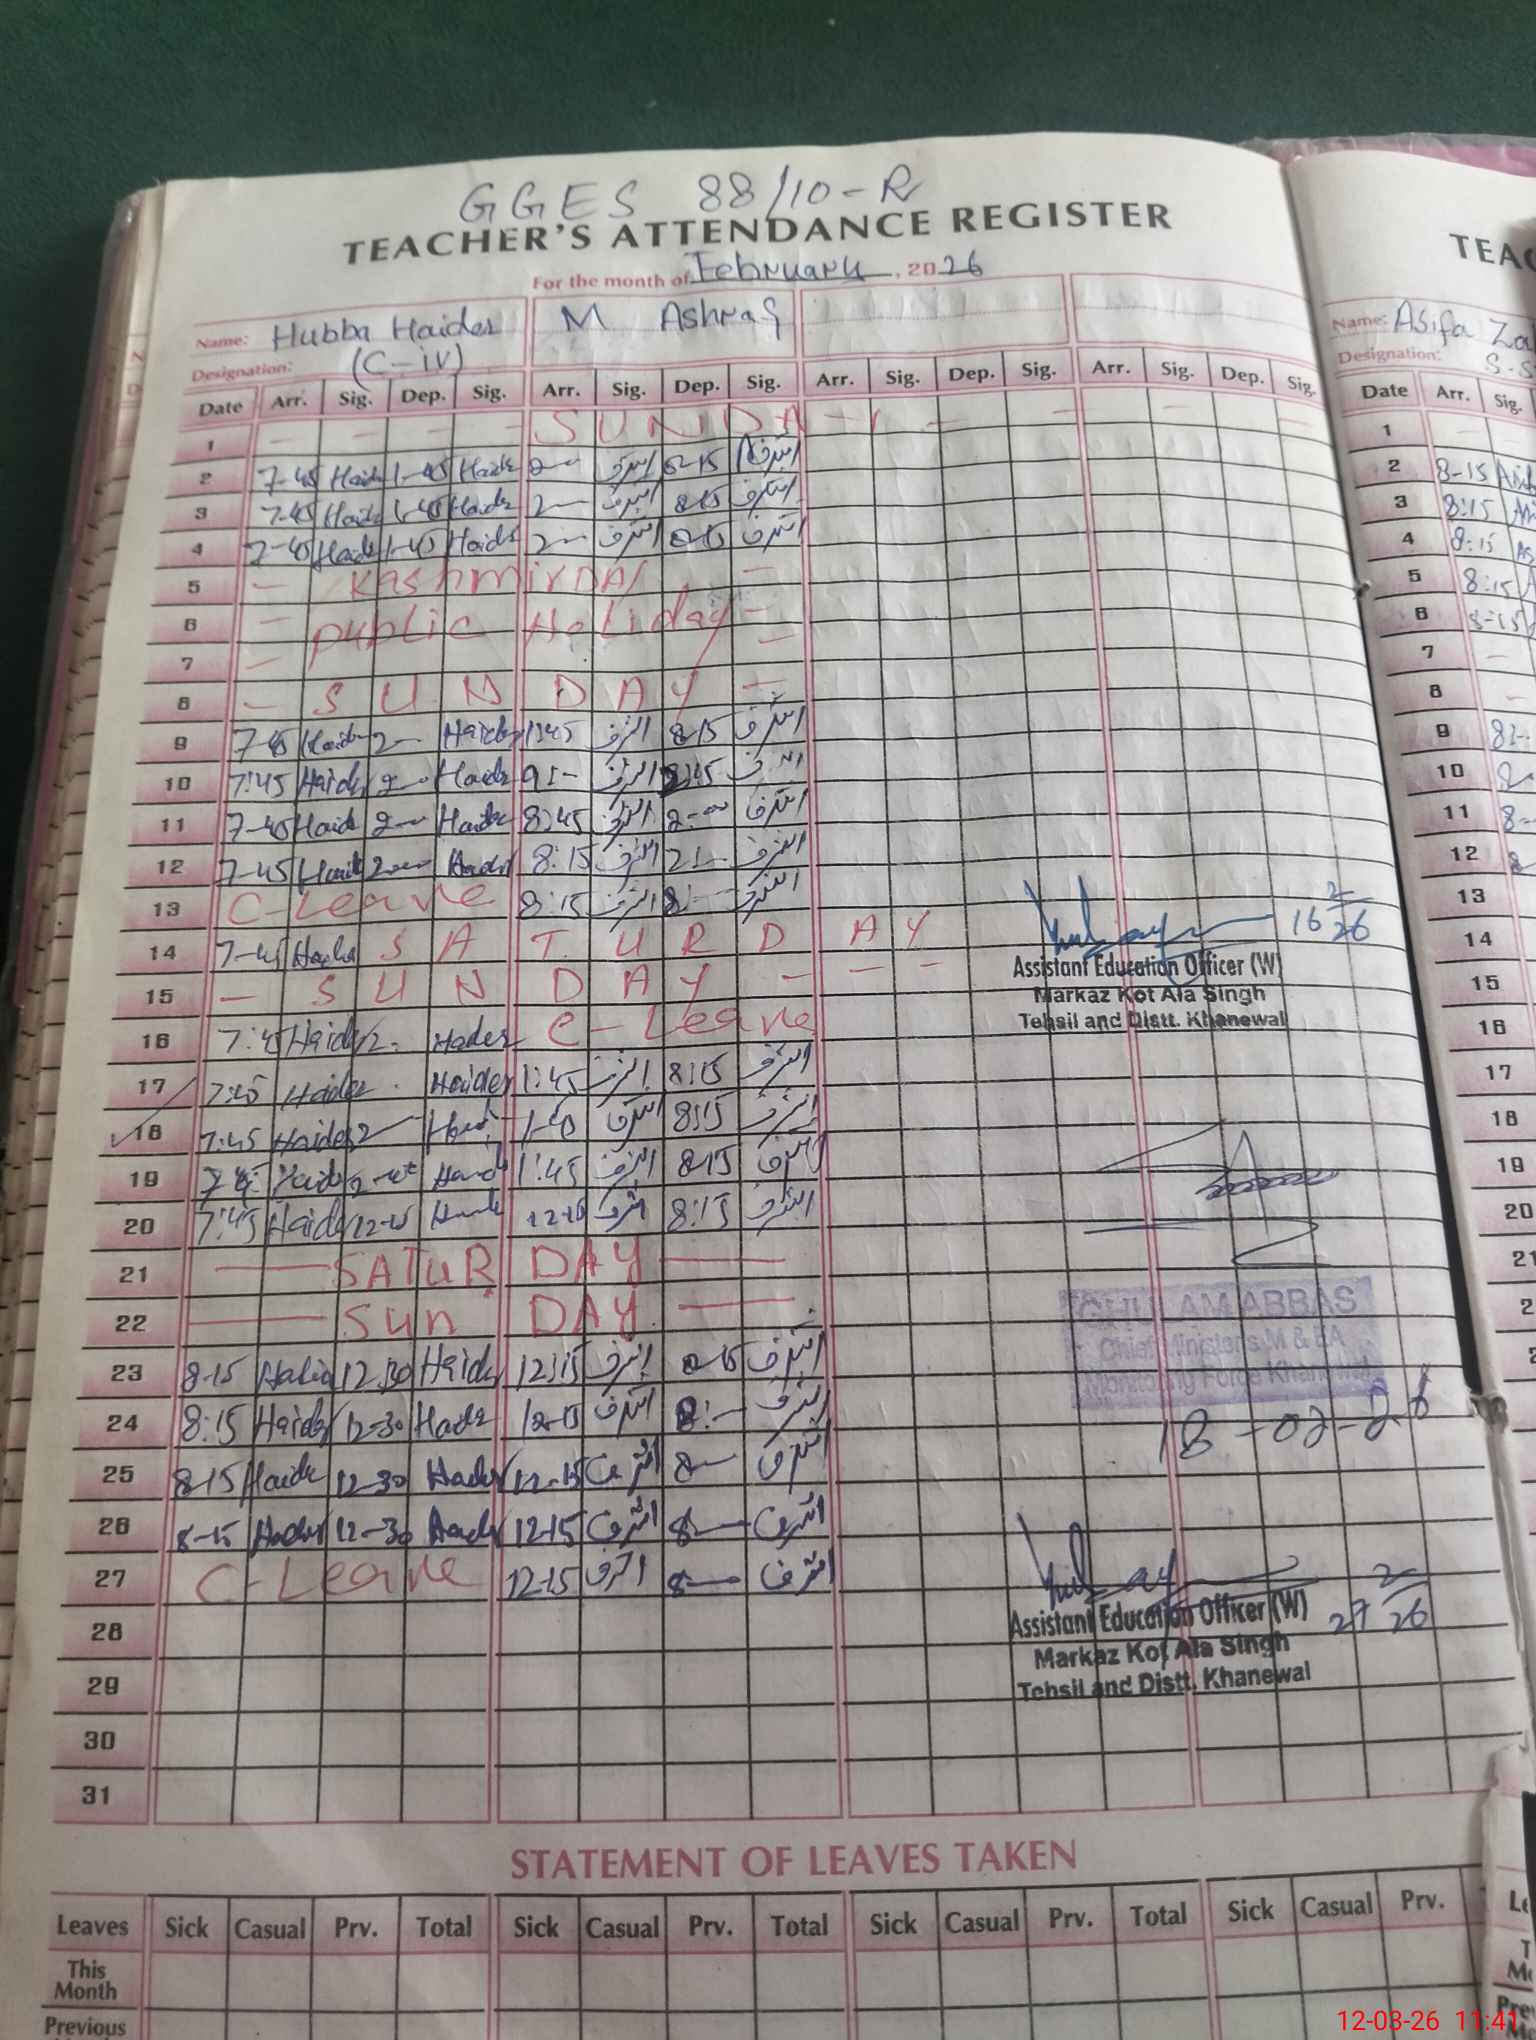 GGES 88/10-R
TEACHER'S ATTENDANCE REGISTER
For the month of February, 2026
Name: Hubba Haider M Ashraf
Designation: (C-iv)
Date Arr. Sig. Dep. Sig. Arr. Sig. Dep. Sig. Arr. Sig. Dep. Sig. Arr. Sig. Dep. Sig.
1 - - - - - SUNDAY -
2 7-45 Haider 1-45 Haider اشرف 8-15 اشرف
3 7-45 Haider 1-45 Haider 2- اشرف 8-15 اشرف
4 7-45 Haider 1-45 Haider 2- اشرف 8-15 اشرف
5 - Kashmir DAY -
6 - Public Holiday -
7 - -
8 - SUNDAY -
9 7-45 Haider 2- Haider 1:45 اشرف 8-15 اشرف
10 7:45 Haider 2- Haider اشرف اشرف
11 7-45 Haider 2- Haider 8:45 اشرف 2- اشرف
12 7-45 Haider 2- Haider 8:15 اشرف 2:- اشرف
13 C-Leave 8:15 اشرف 8:- اشرف
14 7-45 Haider SATURDAY
15 - SUNDAY - - -
16 7:45 Haider 2- Haider C-Leave
17 7:45 Haider Haider 1:45 اشرف 8:15 اشرف
18 7:45 Haider 2- Haider 1-45 اشرف 8:15 اشرف
19 7:45 Haider Haider 1:45 اشرف 8-15 اشرف
20 7:45 Haider 12-15 Haider 12-15 اشرف 8:15 اشرف
21 - SATURDAY -
22 - SunDAY -
23 8-15 Haider 12-30 Haider 12:15 اشرف 8-15 اشرف
24 8:15 Haider 12-30 Haider 12-15 اشرف 8:- اشرف
25 8-15 Haider 12-30 Haider 12-15 اشرف 8- اشرف
26 8-15 Haider 12-30 Haider 12-15 اشرف 8- اشرف
27 C-Leave 12-15 اشرف 8- اشرف
28
29
30
31
16 2/26
Assistant Education Officer (W)
Markaz Kot Ala Singh
Tehsil and Distt. Khanewal
GHULAM ABBAS
Chief Minister's M & EA
Monitoring Force Khanewal
18-02-26
27 2/26
Assistant Education Officer (W)
Markaz Kot Ala Singh
Tehsil and Distt. Khanewal
STATEMENT OF LEAVES TAKEN
Leaves Sick Casual Prv. Total Sick Casual Prv. Total Sick Casual Prv. Total Sick Casual Prv.
This Month
Previous
TEAC
Name: Asifa Za
Designation: S-S
Date Arr. Sig.
1
2 8-15
3 8:15
4 8:15
5 8:15
6 8-15
7 -
8 -
9
10
11
12
13
14
15
16
17
18
19
20
21
12-03-26 11:41